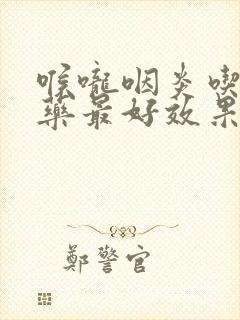 喉嚨咽炎喫
藥最好效果
鄭警官